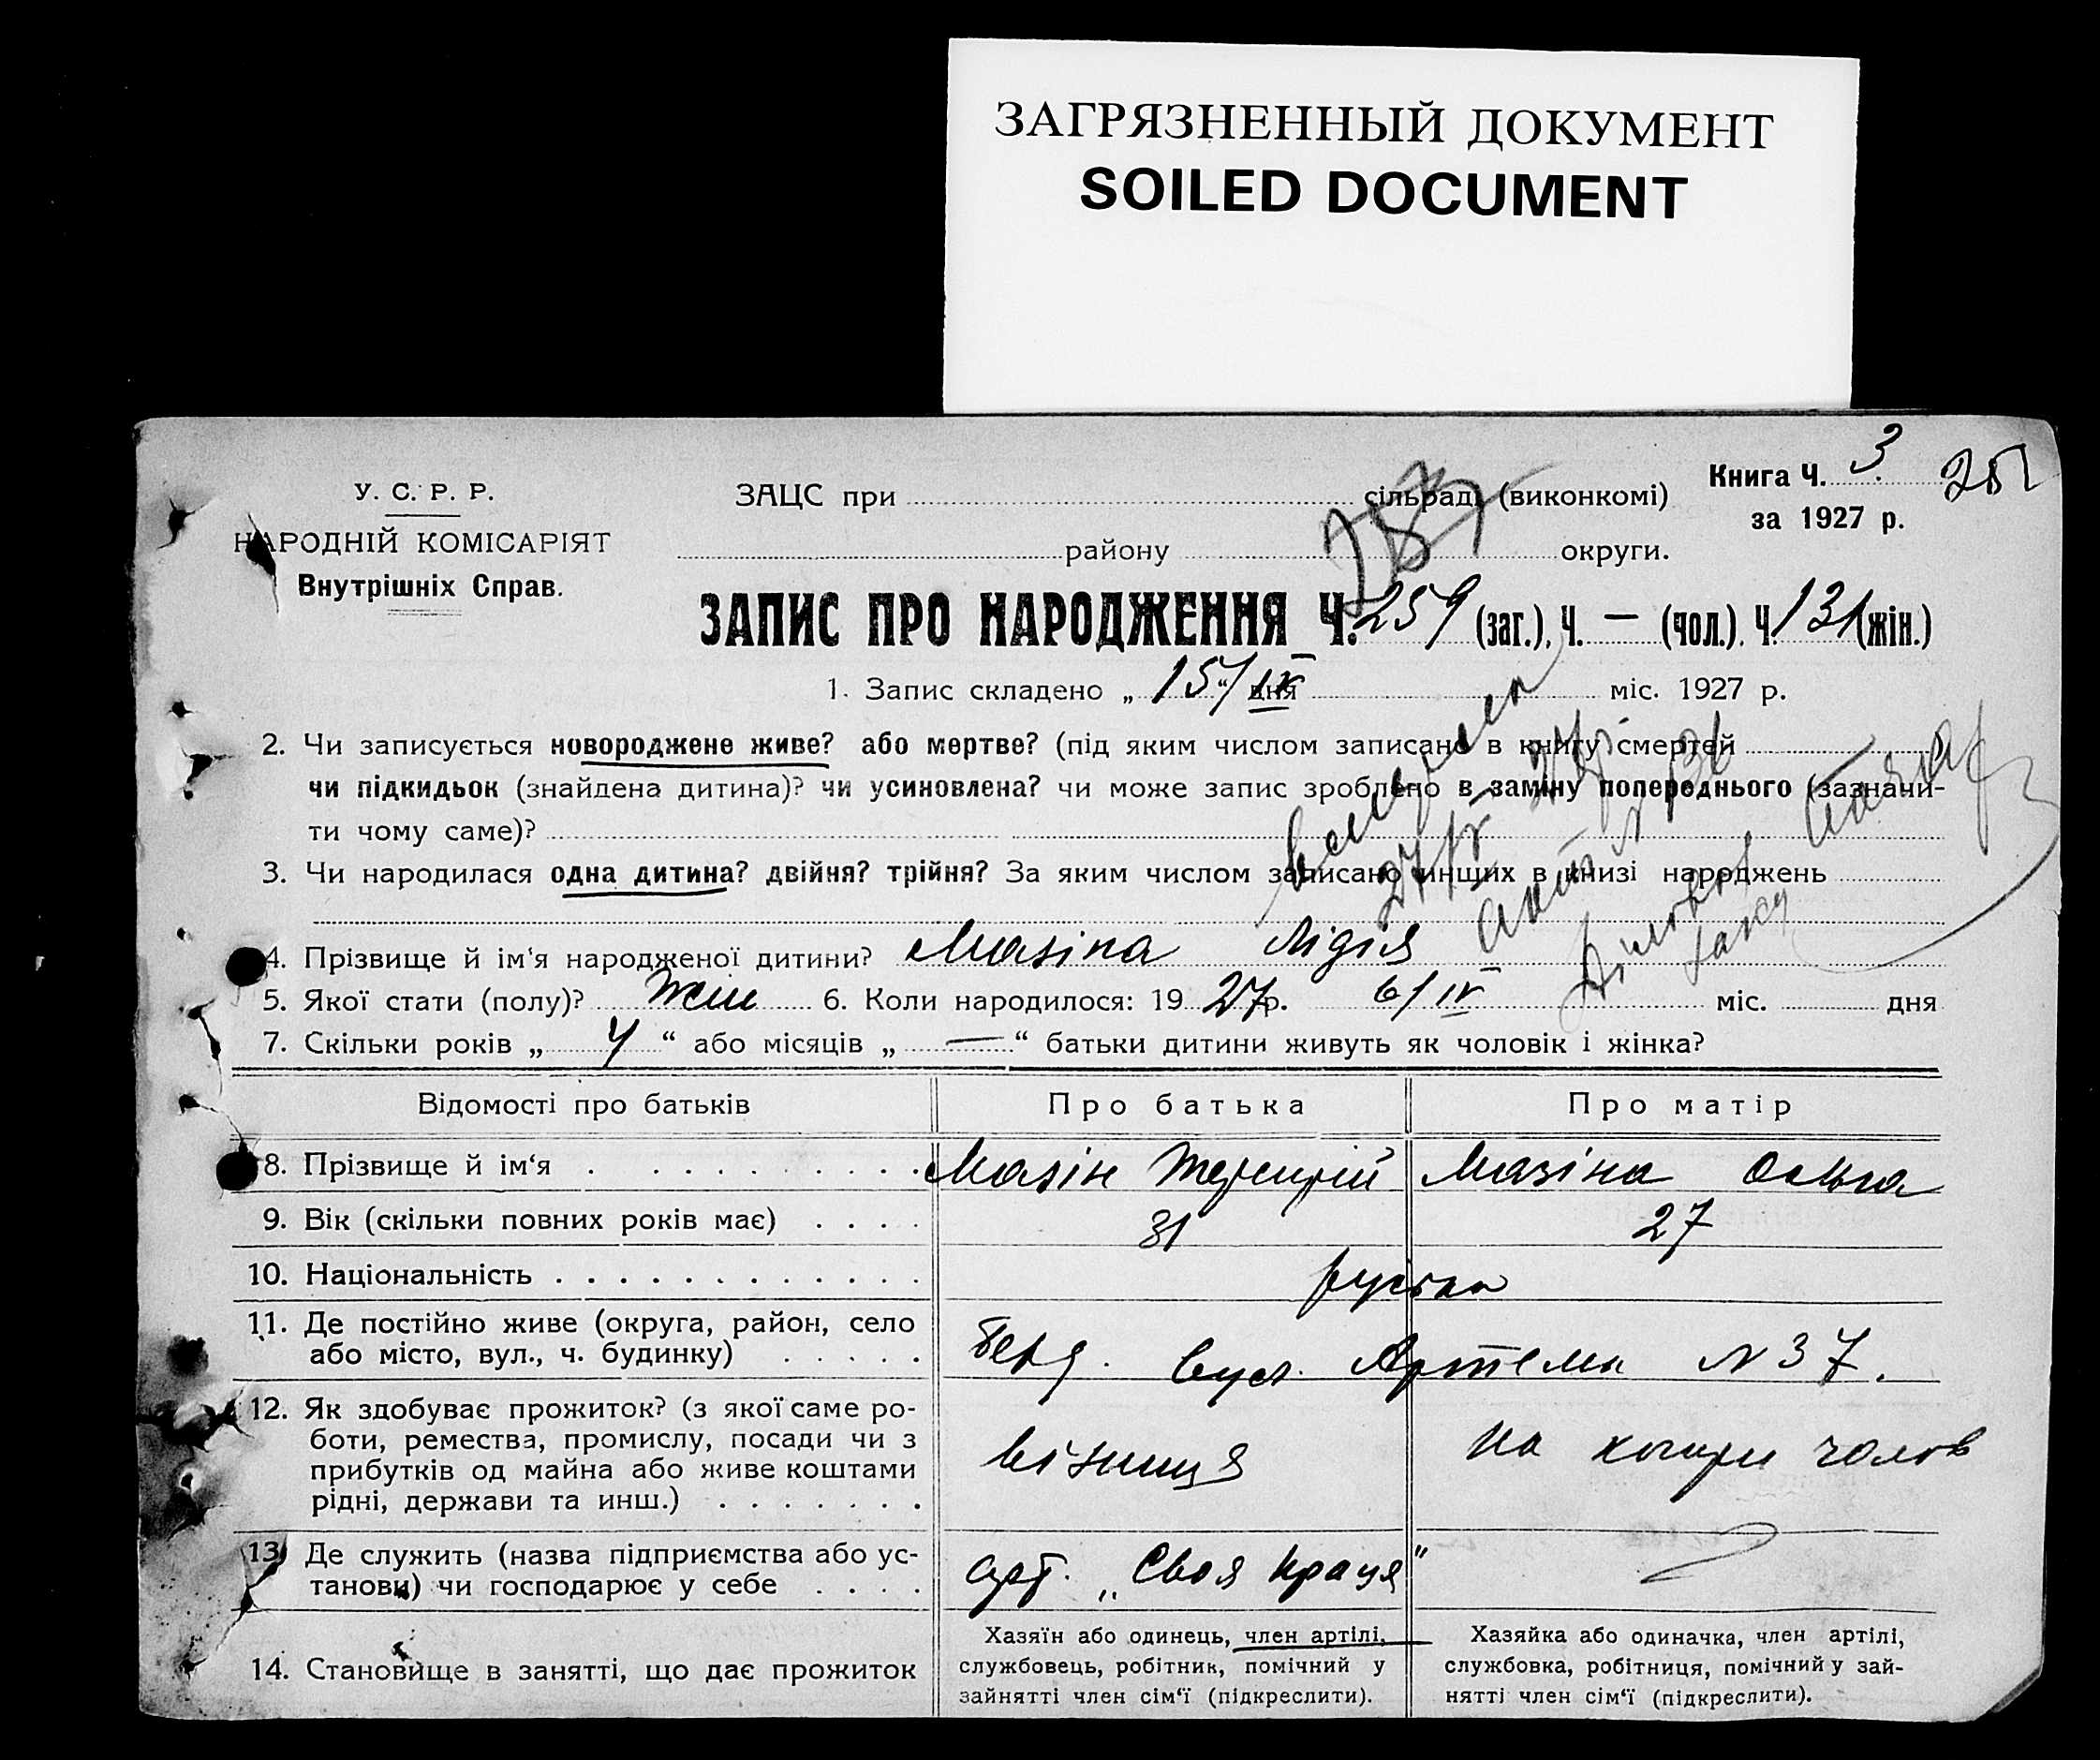 ЗАГРЯЗНЕННЫЙ ДОКУМЕНТ
SOILED DOCUMENT
Книга Ч. 3
за 1927 р.
У. С. Р. Р.
НАРОДНІЙ КОМІСАРІЯТ
Внутрішніх Справ.
ЗАЦС при сільраді (виконкомі)
району округи.
ЗАПИС ПРО НАРОДЖЕННЯ Ч. 259 (заг.), Ч. — (чол.), Ч. 131 (жін.)
1. Запис складено „ 15/IV “ дня міс. 1927 р.
2. Чи записується новороджене живе? або мертве? (під яким числом записано в книгу смертей
чи підкидьок (знайдена дитина)? чи усиновлена? чи може запис зроблено в заміну попереднього (зазначи-
ти чому саме)?
3. Чи народилася одна дитина? двійня? трійня? За яким числом записано инших в книзі народжень
4. Прізвище й ім‘я народженої дитини? Мазіна Лідія
5. Якої стати (полу)? Жін 6. Коли народилося: 19 27 р. 6/IV міс. дня
7. Скільки років „ 4 “ або місяців „ — “ батьки дитини живуть як чоловік і жінка?
Відомості про батьків Про батька Про матір
8. Прізвище й ім‘я Мазін Мазіна Ольга
9. Вік (скільки повних років має) 31 27
10. Національність руська
11. Де постійно живе (округа, район, село
або місто, вул., ч. будинку)
Берд. вул. Артема N 37.
12. Як здобуває прожиток? (з якої саме ро-
боти, ремества, промислу, посади чи з
прибутків од майна або живе коштами
рідні, держави та инш.)
візниця
на кошти чолов
13. Де служить (назва підприємства або ус-
танови) чи господарює у себе
арт. „Своя Праця“
14. Становище в занятті, що дає прожиток
Хазяїн або одинець, член артілі,
службовець, робітник, помічний у
зайнятті член сім‘ї (підкреслити).
Хазяйка або одиначка, член артілі,
службовка, робітниця, помічний у зай-
нятті член сім‘ї (підкреслити).